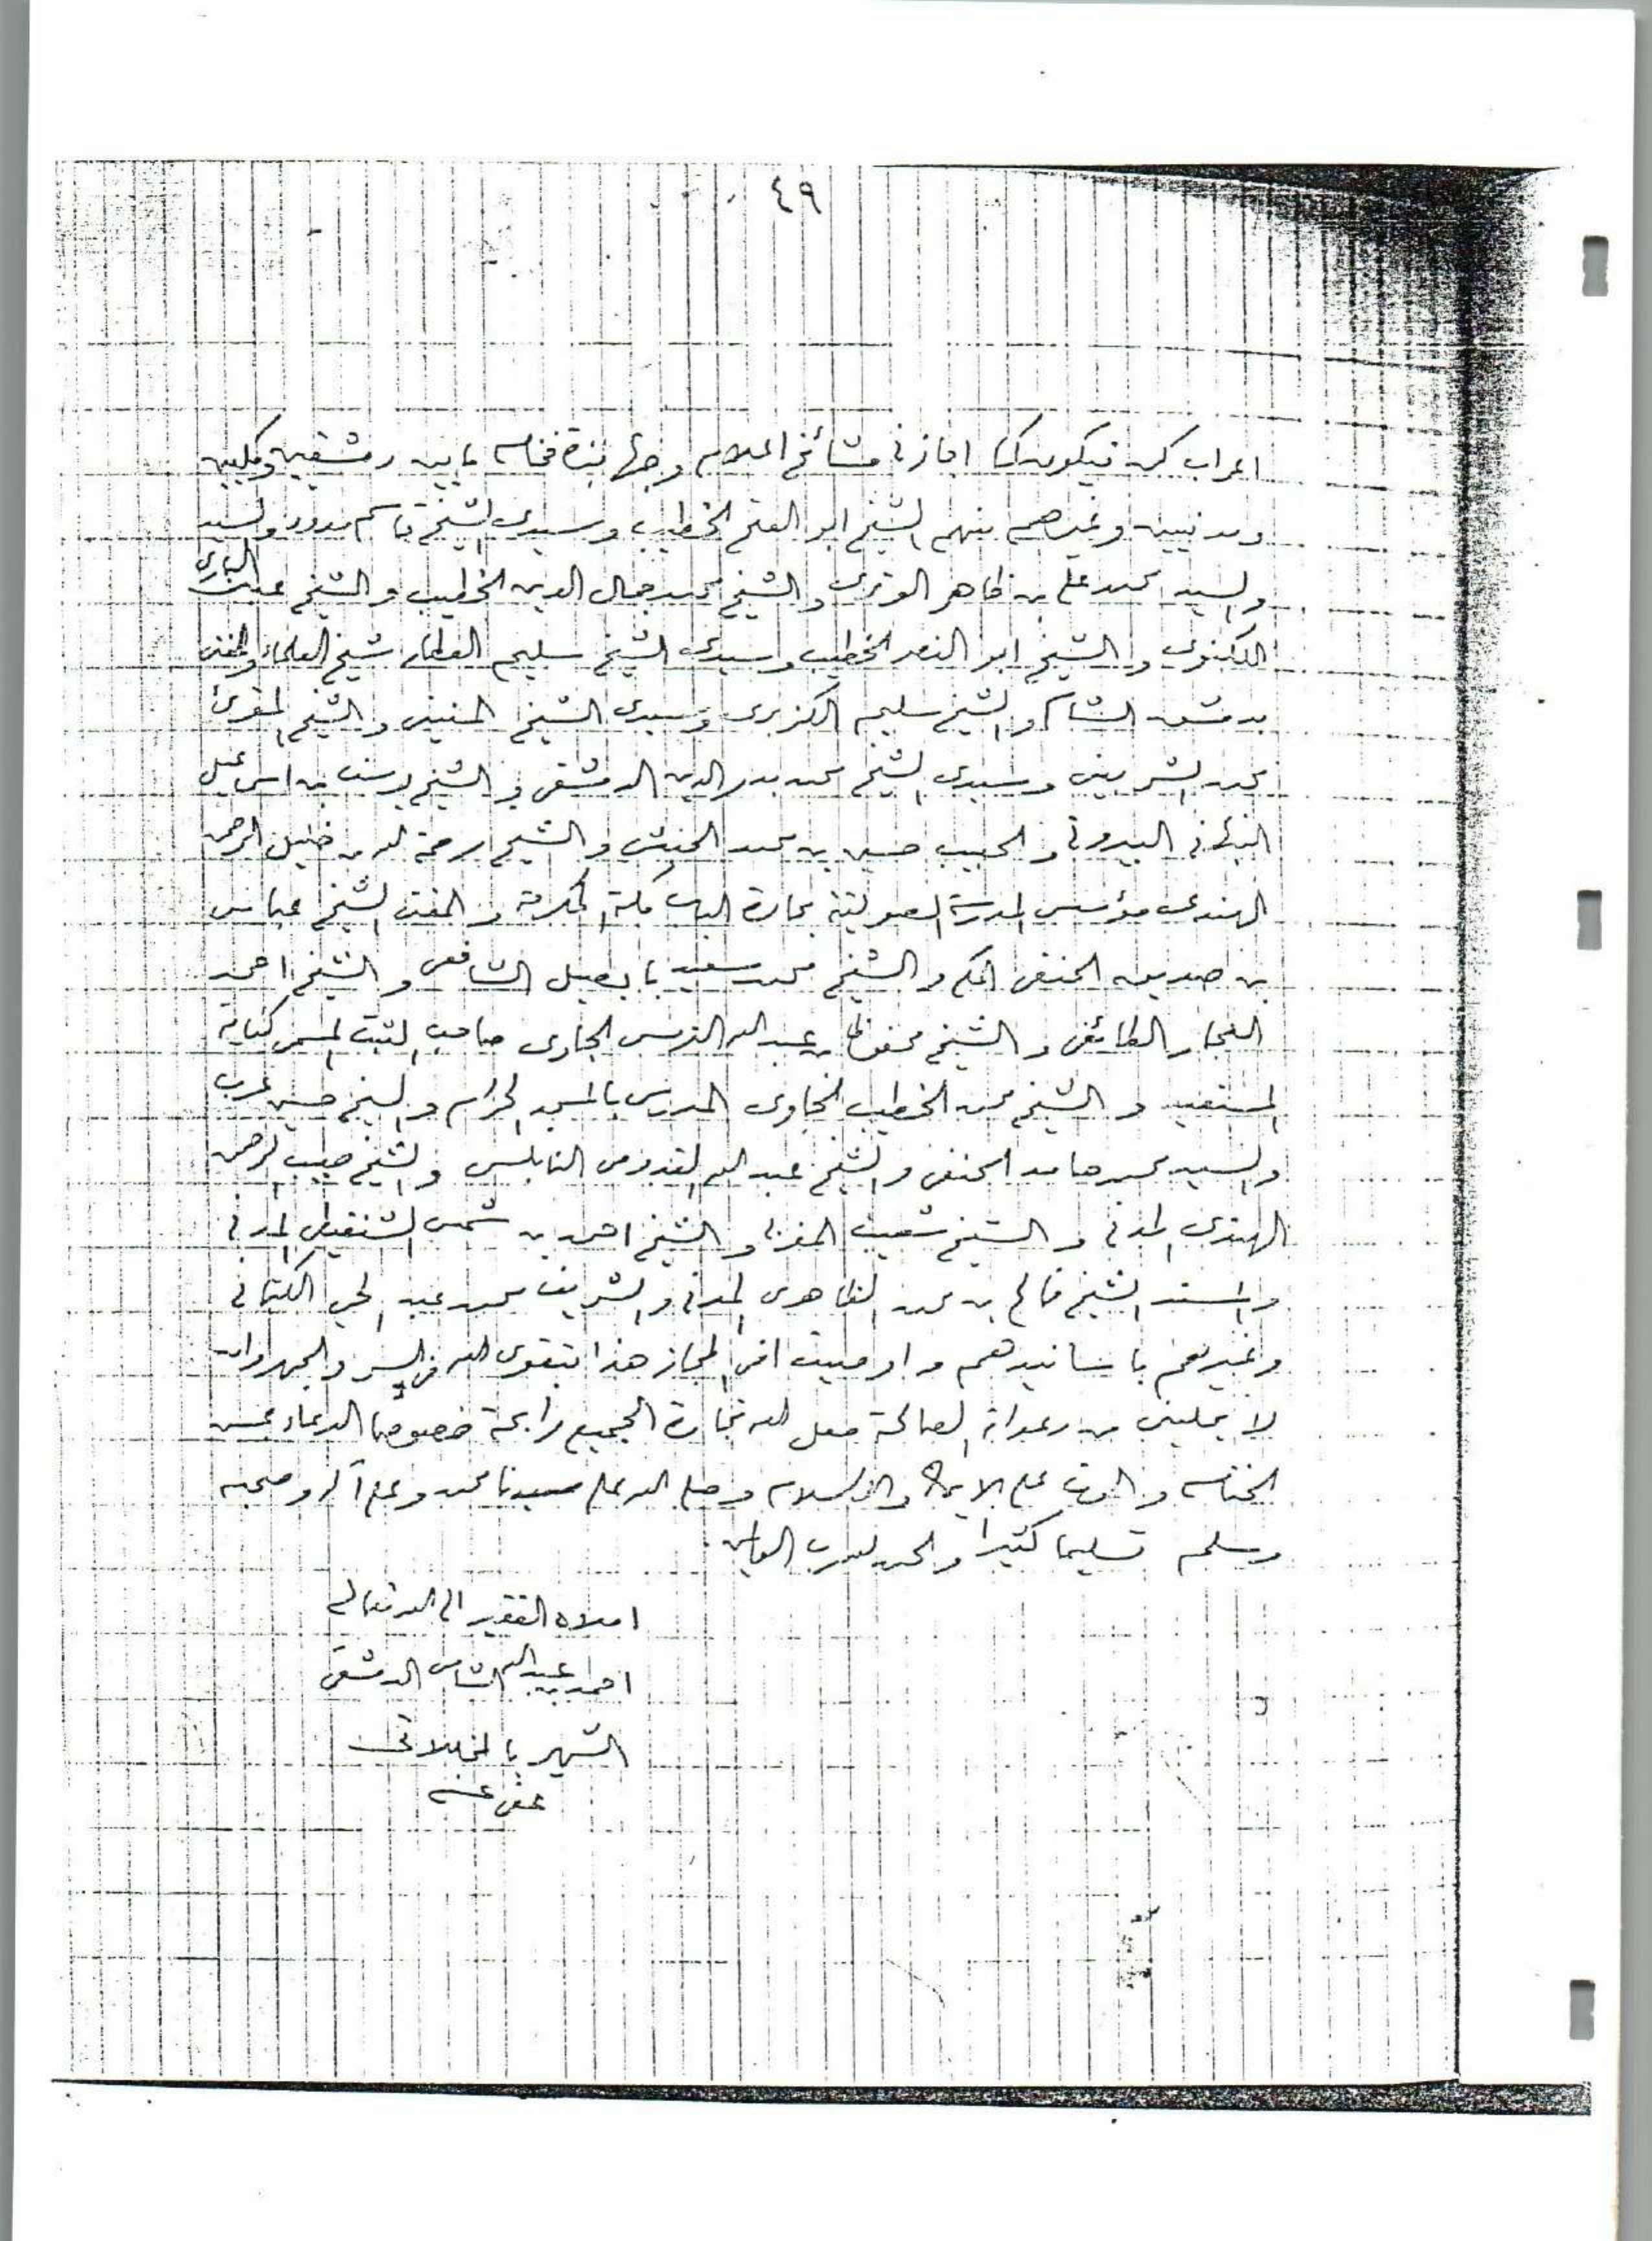 ٤٩
اعراب كي فيكون كما اجازني مشائخ اعلام وجهابذة فخام ما بين دمشقيين ومكيين
ومدنيين وغيرهم منهم الشيخ ابو الفتح الخطيب وسيدي الشيخ قاسم والسيد
والسيد محمد علي بن ظاهر الوتري والشيخ محمد جمال الدين الخطيب والشيخ عبد الباري
اللكنوي والشيخ ابو النصر الخطيب وسيدي الشيخ سليم العطار شيخ العلماء والمفتي
بدمشق الشام والشيخ سليم الكزبري وسيدي الشيخ المنيني والشيخ المقرئ
محمد الشربيني وسيدي الشيخ محمد بدر الدين الدمشقي والشيخ يوسف بن اسماعيل
النبهاني البيروتي والحبيب حسين بن محمد الحبشي والشيخ رحمة الله بن خليل الرحمن
الهندي مؤسس المدرسة الصولتية بحارة الباب مكة المكرمة والمفتي الشيخ عباس
بن صديق الحنفي المكي والشيخ محمد سعيد بابصيل الشافعي والشيخ احمد
النجار الطائفي والشيخ محفوظ بن عبد الله الترمسي الجاوي صاحب الثبت المسمى كفاية
المستفيد والشيخ محمد الخطيب الجاوي المدرس بالمسجد الحرام والشيخ حسين عرب
والسيد محمد حامد الحنفي والشيخ عبد الله القدومي النابلسي والشيخ حبيب الرحمن
الهندي المدني والشيخ شعيب المغربي والشيخ احمد بن شمس الشنقيطي المدني
والسند الشيخ فالح بن محمد الظاهري المدني والشريف محمد عبد الحي الكتاني
وغيرهم باسانيدهم واوصيت اخي المجاز هذا بتقوى الله في السر والجهر وان
لا يخليني من دعواته الصالحة جعل الله تجارة الجميع رابحة خصوصا الدعاء بحسن
الختام والموت على الايمان والاسلام وصلى الله على سيدنا محمد وعلى آله وصحبه
وسلم تسليما كثيرا والحمد لله رب العالمين
املاه الفقير الى الله تعالى
احمد بن عبد الله الشامي الدمشقي
الشهير بالمخللاتي
عفي عنه